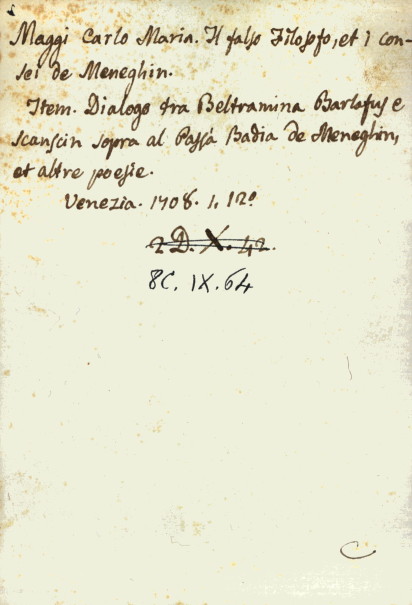 Maggi Carlo Maria. Il falso Filosofo, et i con-
sei de Meneghin.
Item. Dialogo tra Beltramina Barlafus e
Scanscin sopra al Passà Badia de Meneghin,
et altre poesie.
Venezia. 1708. 1. 12º
2 D. X. 42.
8C. IX. 64
C